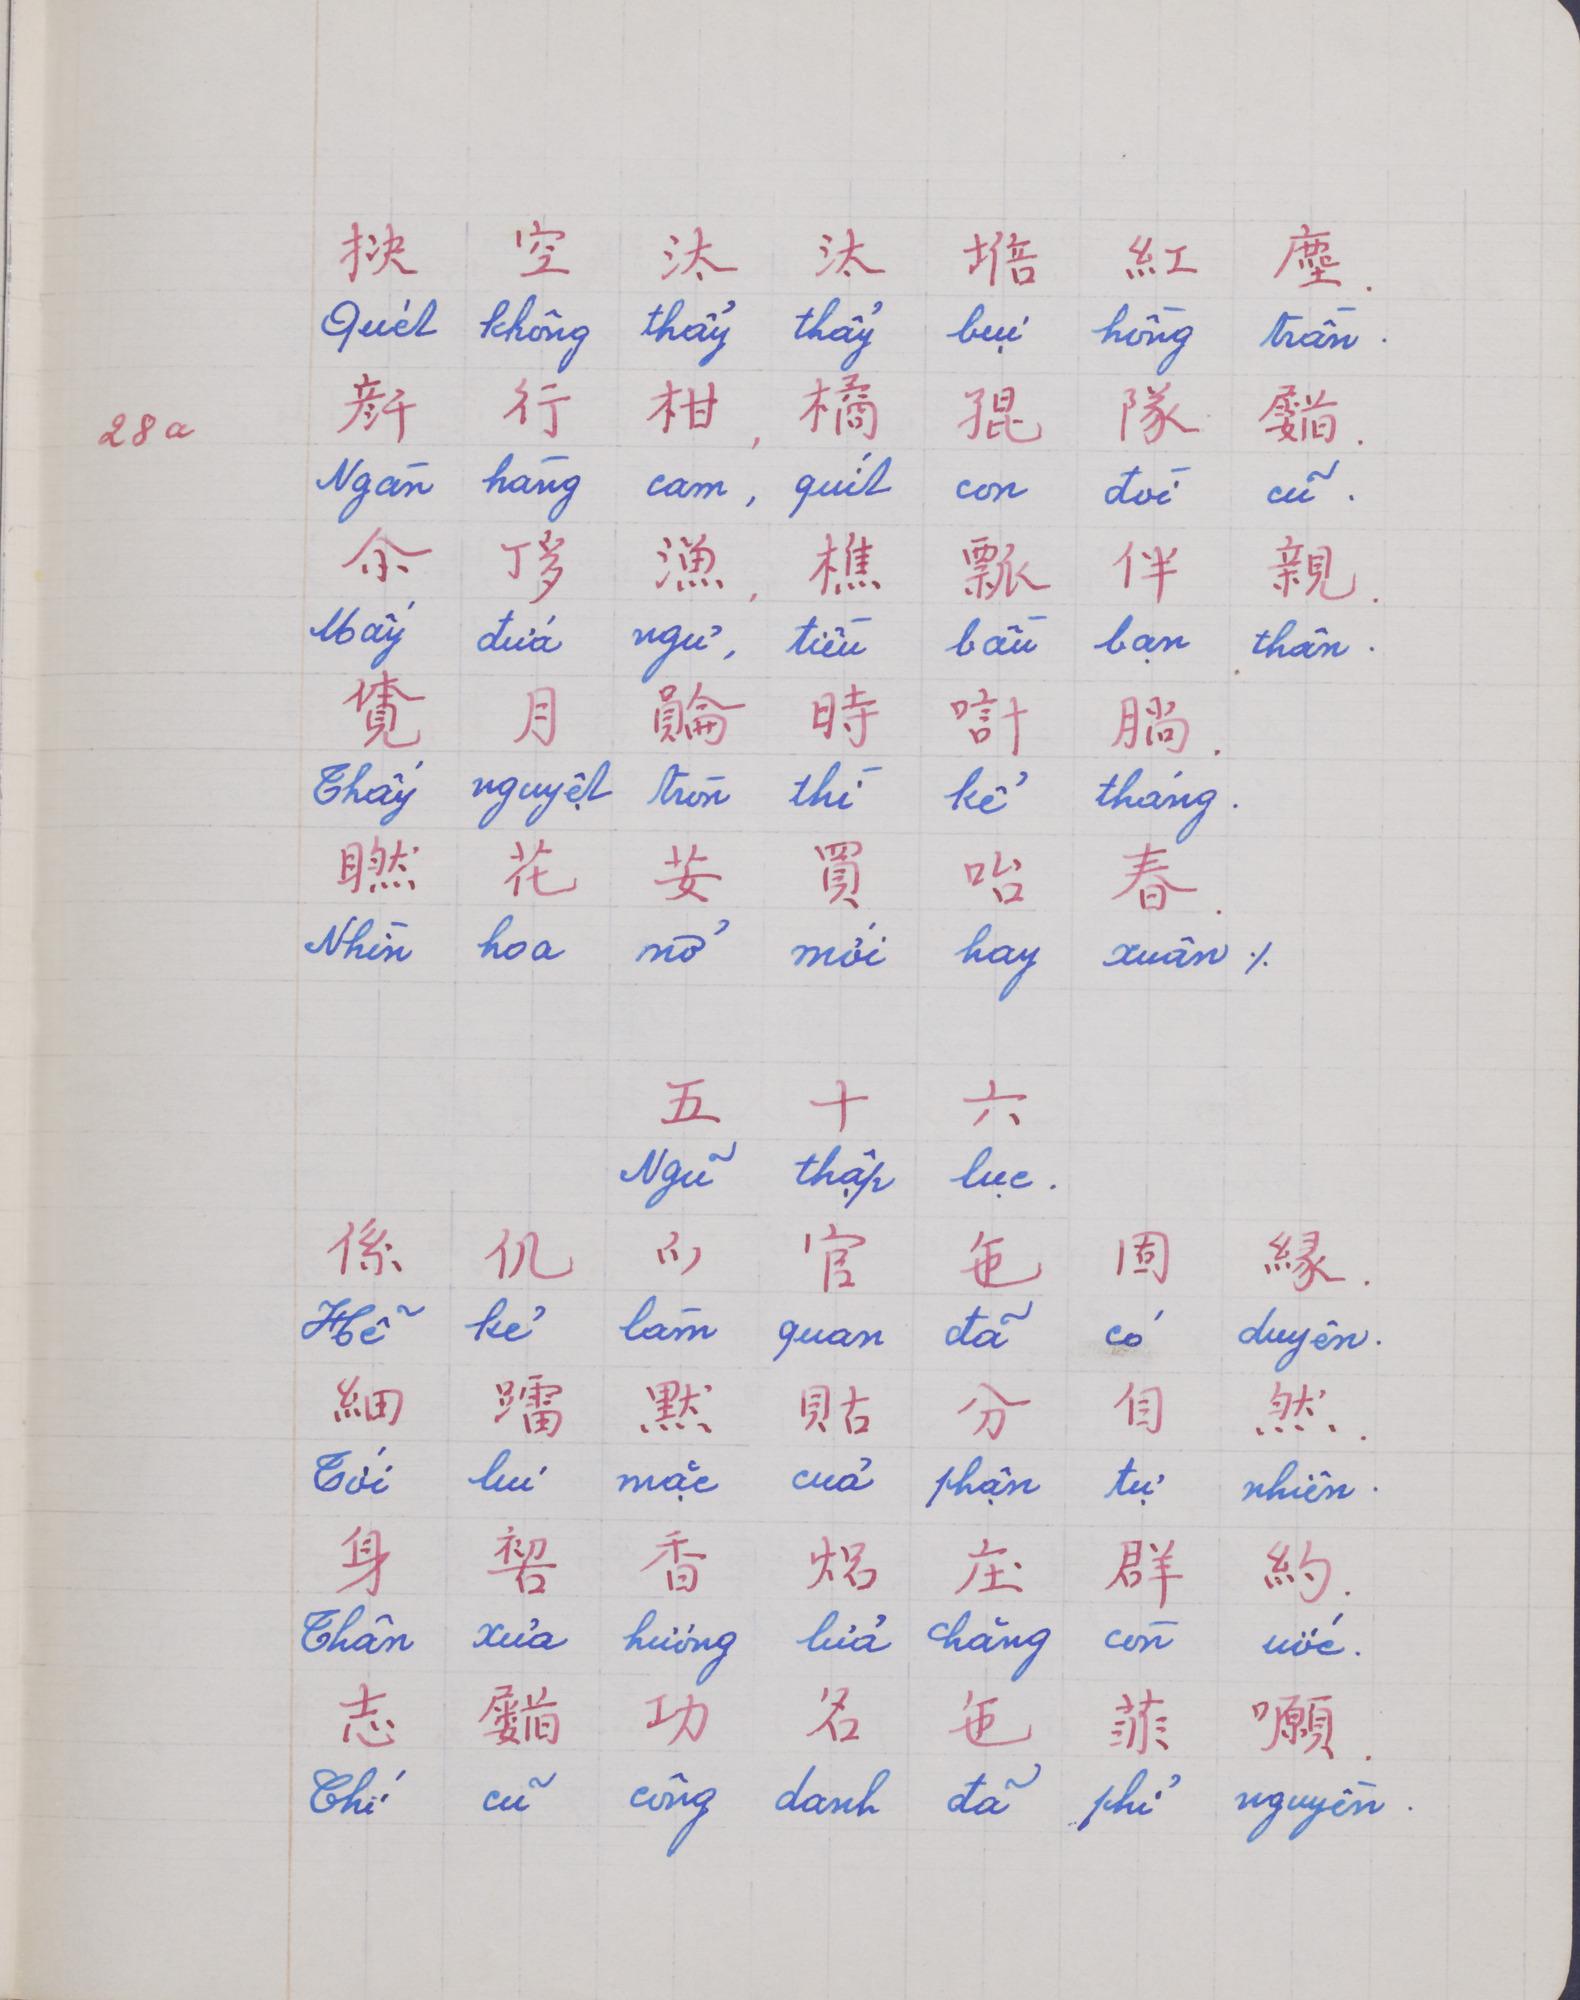 抉 空 汰 汰 㙡 紅 塵.
Quét không thẩy thẩy bụi hồng trần.
𠦳 行 柑, 橘 猑 隊 𡳰.
28a
Ngàn hàng cam, quít con đòi cũ.
余 𠀲 漁, 樵 瓢 伴 親.
Mấy đứa ngư, tiều bầu bạn thân.
覓 月 𧷺 時 計 腡.
Thấy nguyệt tròn thì kể tháng.
𥄮 花 芰 買 咍 春.
Nhìn hoa nở mới hay xuân ./.
五 十 六
Ngũ thập lục.
係 仉 𫜵 官 㐌 固 緣.
Hễ kẻ làm quan đã có duyên.
細 蹯 默 貼 分 自 然.
Tới lui mặc của phận tự nhiên.
身 𫖀 香 焒 庄 群 約.
Thân xưa hương lửa chăng còn ước.
志 𡳰 功 名 㐌 菲 願.
Chí cũ công danh đã phỉ nguyền.